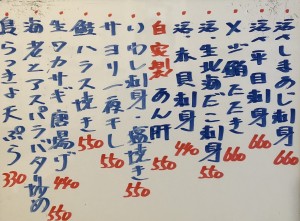 活〆しまあじ刺身 660
活〆平目刺身 660
メジ鮪たたき 660
活〆生北海だこ刺身 550
活〆赤貝刺身 440
自家製 あん肝 550
いわし刺身・塩焼き 550
サヨリ一夜干し 550
鮭ハラス焼き 550
生ワカサギ唐揚げ 440
海老とアスパラバター炒め 550
島らっきょ天ぷら 330